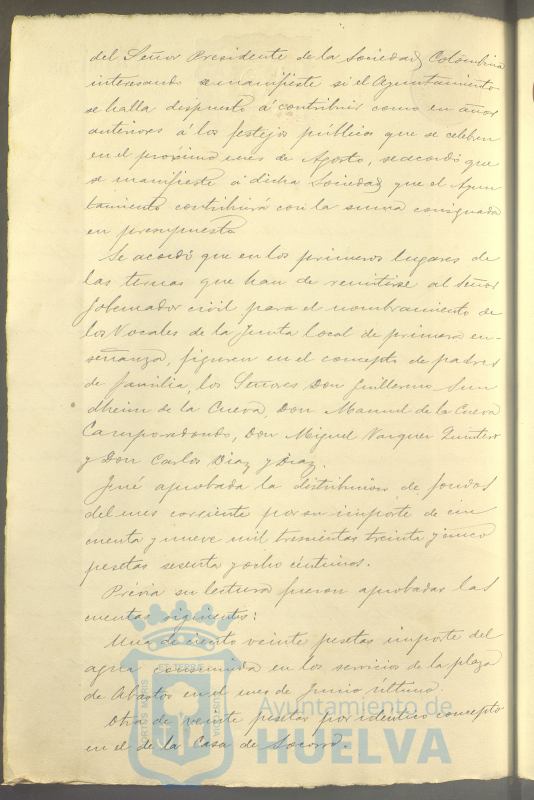 del Señor Presidente de la Sociedad Colombina
interesando se manifieste si el Ayuntamiento
se halla dispuesto á contribuir como en años
anteriores á los festejos públicos que se celebren
en el proximo mes de Agosto, se acordó que
se manifieste á dicha Sociedad que el Ayun
tamiento contribuirá con la suma consignada
en presupuesto
Se acordó que en los primeros lugares de
las ternas que han de remitirse al Señor
Gobernador civil para el nombramiento de
los Vocales de la Junta local de primera en-
señanza, figuren en el concepto de padres
de familia, los Señores Don Guillermo Sun
dheim de la Cueva, Don Manuel de la Cueva
Camporadondo, Don Miguel Vazquez Quintero
y Don Carlos Diaz y Diaz.
Fué aprobada la distribucion de fondos
del mes corriente por su importe de cin
cuenta y nueve mil trescientas treinta y cinco
pesetas sesenta y ocho céntimos.
Prévia su lectura fueron aprobadas las
cuentas siguientes:
Una de ciento veinte pesetas importe del
agua consumida en los servicios de la plaza
de Abastos en el mes de Junio último.
Otra de veinte pesetas por idéntico concepto
en el de la Casa de Socorro.
Ayuntamiento de
HUELVA